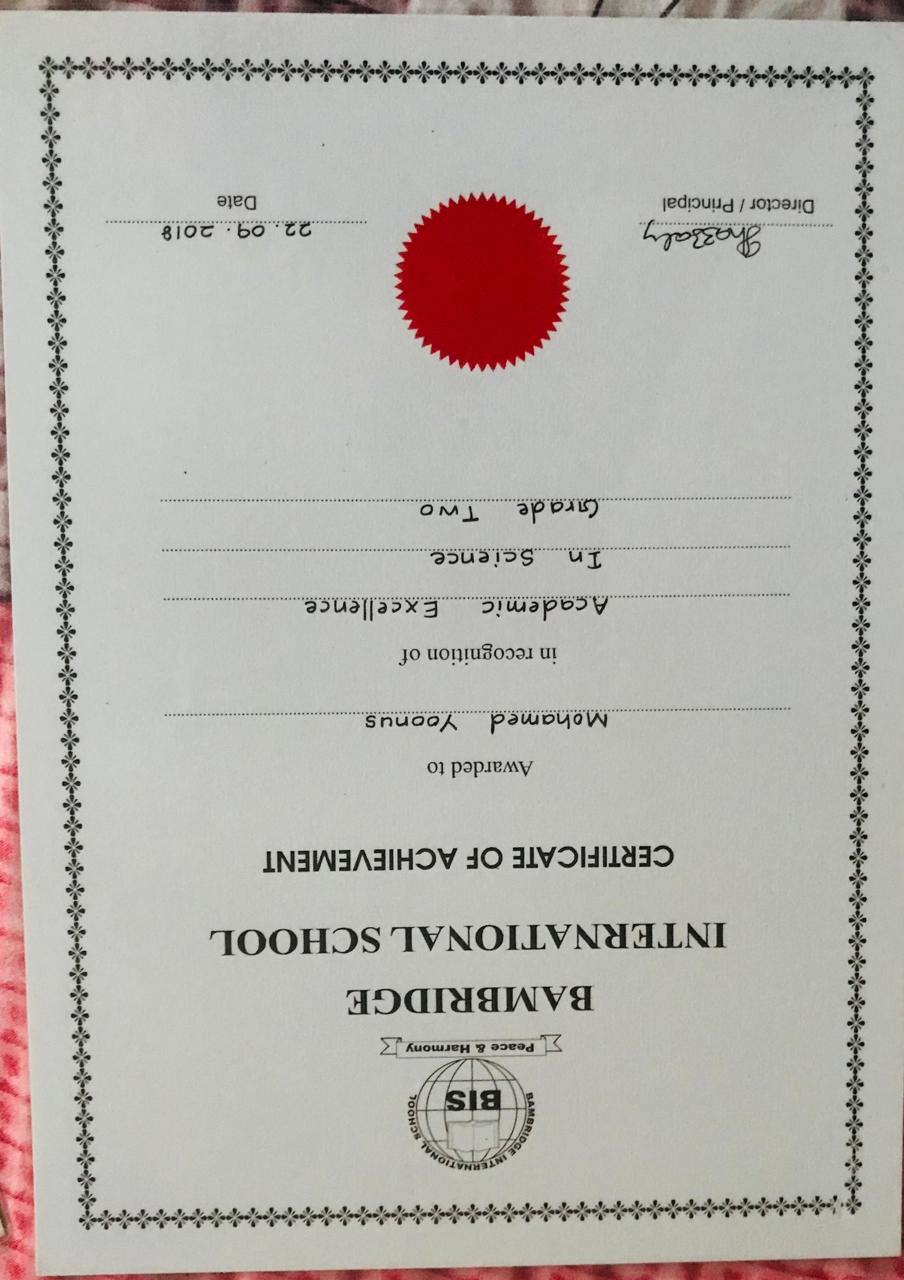 BAMBRIDGE INTERNATIONAL SCHOOL
BIS
Peace & Harmony
BAMBRIDGE
INTERNATIONAL SCHOOL
CERTIFICATE OF ACHIEVEMENT
Awarded to
Mohamed Yoonus
in recognition of
Academic Excellence
In Science
Grade Two
Ghazzaly 22.09.2018
Director / Principal Date